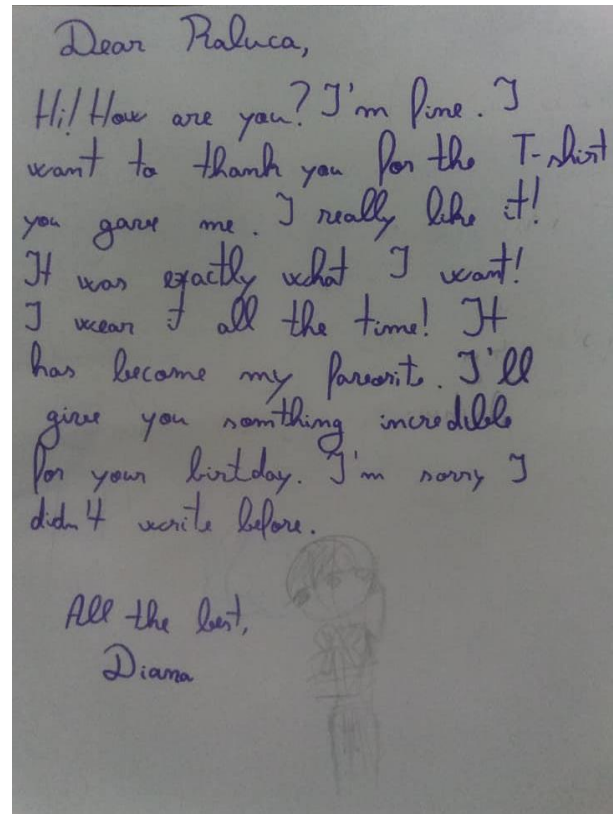 Dear Raluca,
Hi! How are you? I'm fine. I
want to thank you for the T-shirt
you gave me. I really like it!
It was exactly what I want!
I wear it all the time! It
has become my favorite. I'll
give you somthing incredible
for your birtday. I'm sorry I
didn't write before.
All the best,
Diana